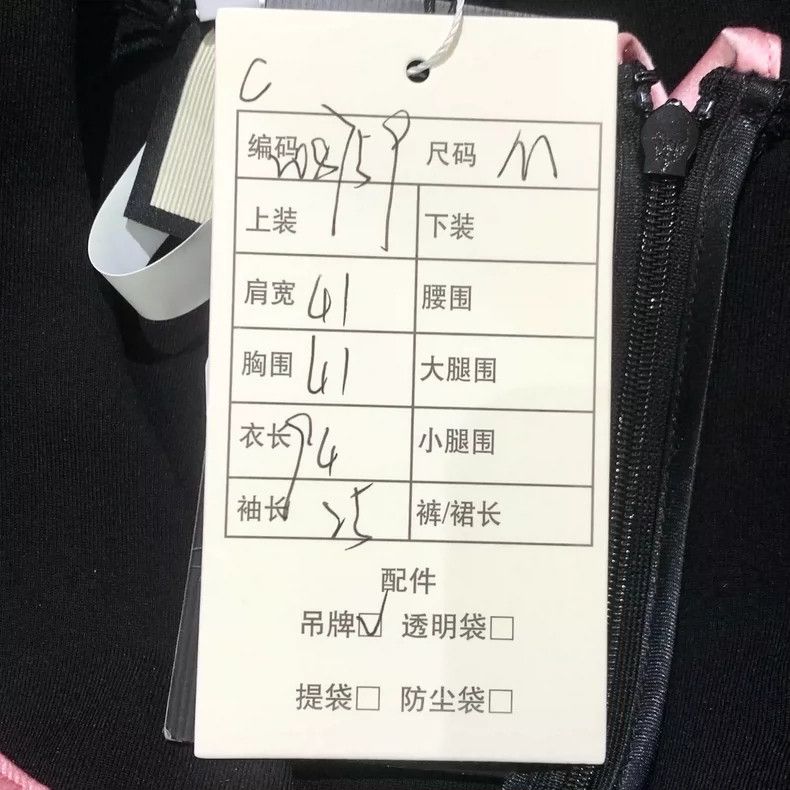 C
编码 尺码 M
上装 下装
肩宽 41 腰围
胸围 41 大腿围
衣长 小腿围
袖长 25 裤/裙长
配件
吊牌☑ 透明袋□
提袋□ 防尘袋□